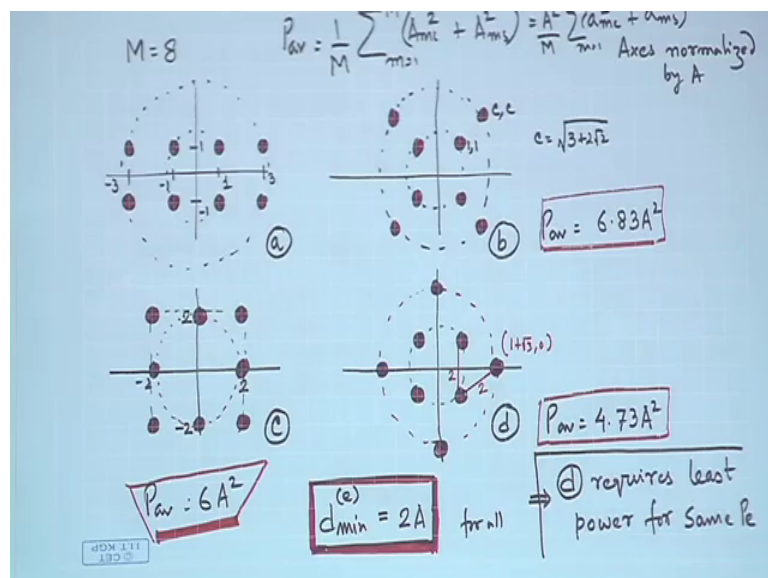 M=8
P_av = 1/M Σ_{m=1} (A_mc^2 + A_ms^2) = A^2/M Σ_{m=1} (a_mc^2 + a_ms^2)
Axes normalized
by A
1
-3 -1 1 3
-1
a
c, c
1,1
c = √3+2√2
b
P_av = 6.83A^2
2
-2 2
-2
c
(1+√3, 0)
2 2
d
P_av = 4.73A^2
P_av = 6A^2
d_min^(e) = 2A for all
⇒ d requires least
power for same Pe
© CET
I.I.T. KGP